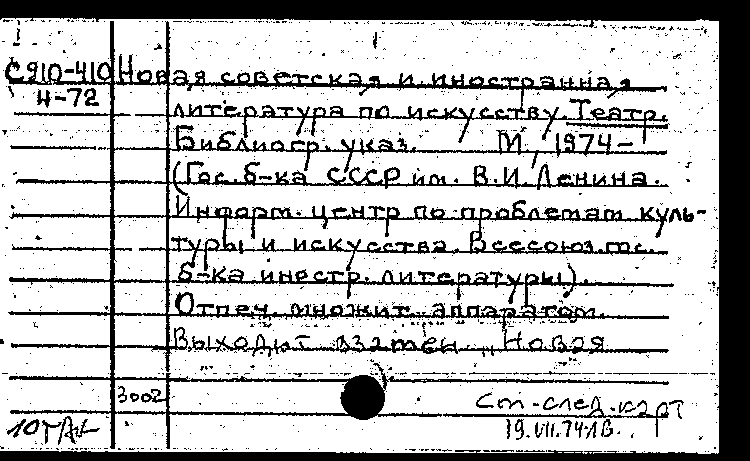 С910-410 Новая советская и иностранная
Н-72 литература по искусству. Театр.
Библиогр. указ. М., 1974-
(Гос. б-ка СССР им. В.И. Ленина.
Информ. центр по проблемам куль-
туры и искусства. Всесоюз. гос.
б-ка иностр. литературы).
Отпеч. множит. аппаратом.
Выходит взамен „Новая
3002
См. след. карт
19.VII.74